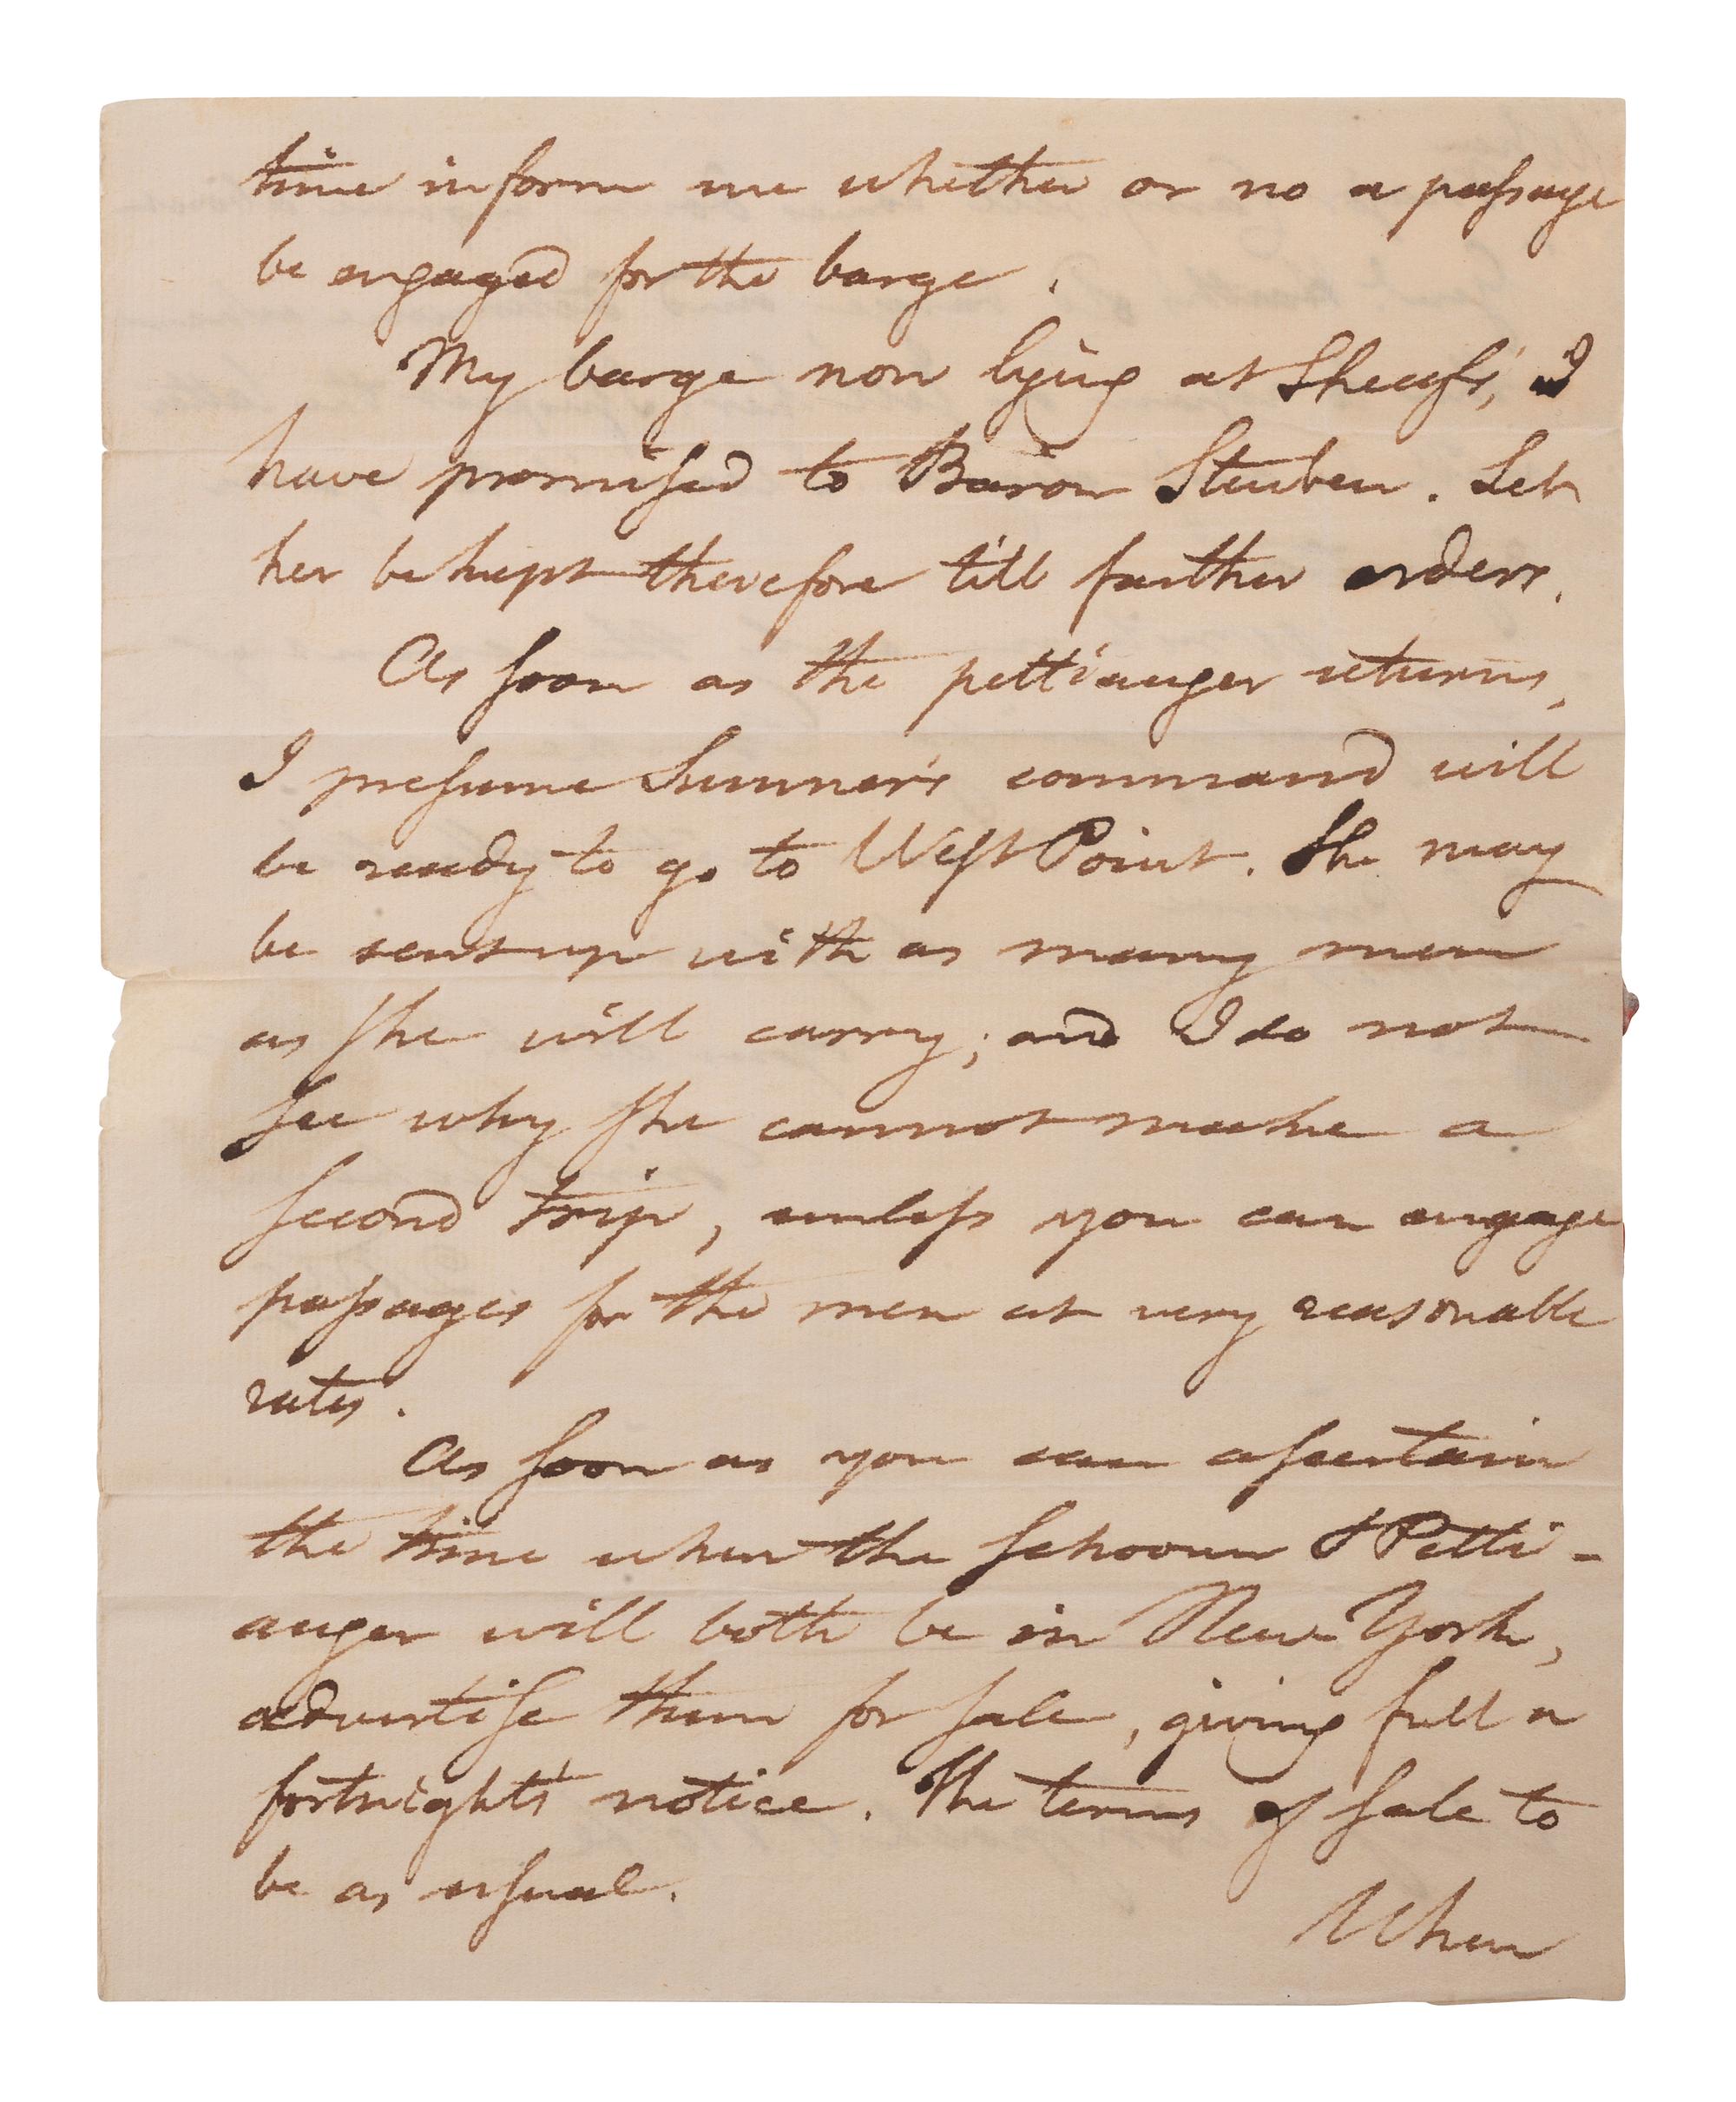 time inform me whether or no a passage
be engaged for the barge.
My barge now lying at Sheafs', I
have promised to Baron Steuben. Let
her be kept therefore till further orders.
As soon as the pettiauger returns,
I presume Sumner's command will
be ready to go to West Point. She may
be sent up with as many men
as she will carry; and I do not
see why she cannot make a
second trip, unless you can engage
passages for the men at very reasonable
rates.
As soon as you can ascertain
the time when the schooner & Petti-
auger will both be in New-York,
advertise them for sale, giving full a
fortnight's notice. The terms of sale to
be as usual.
When